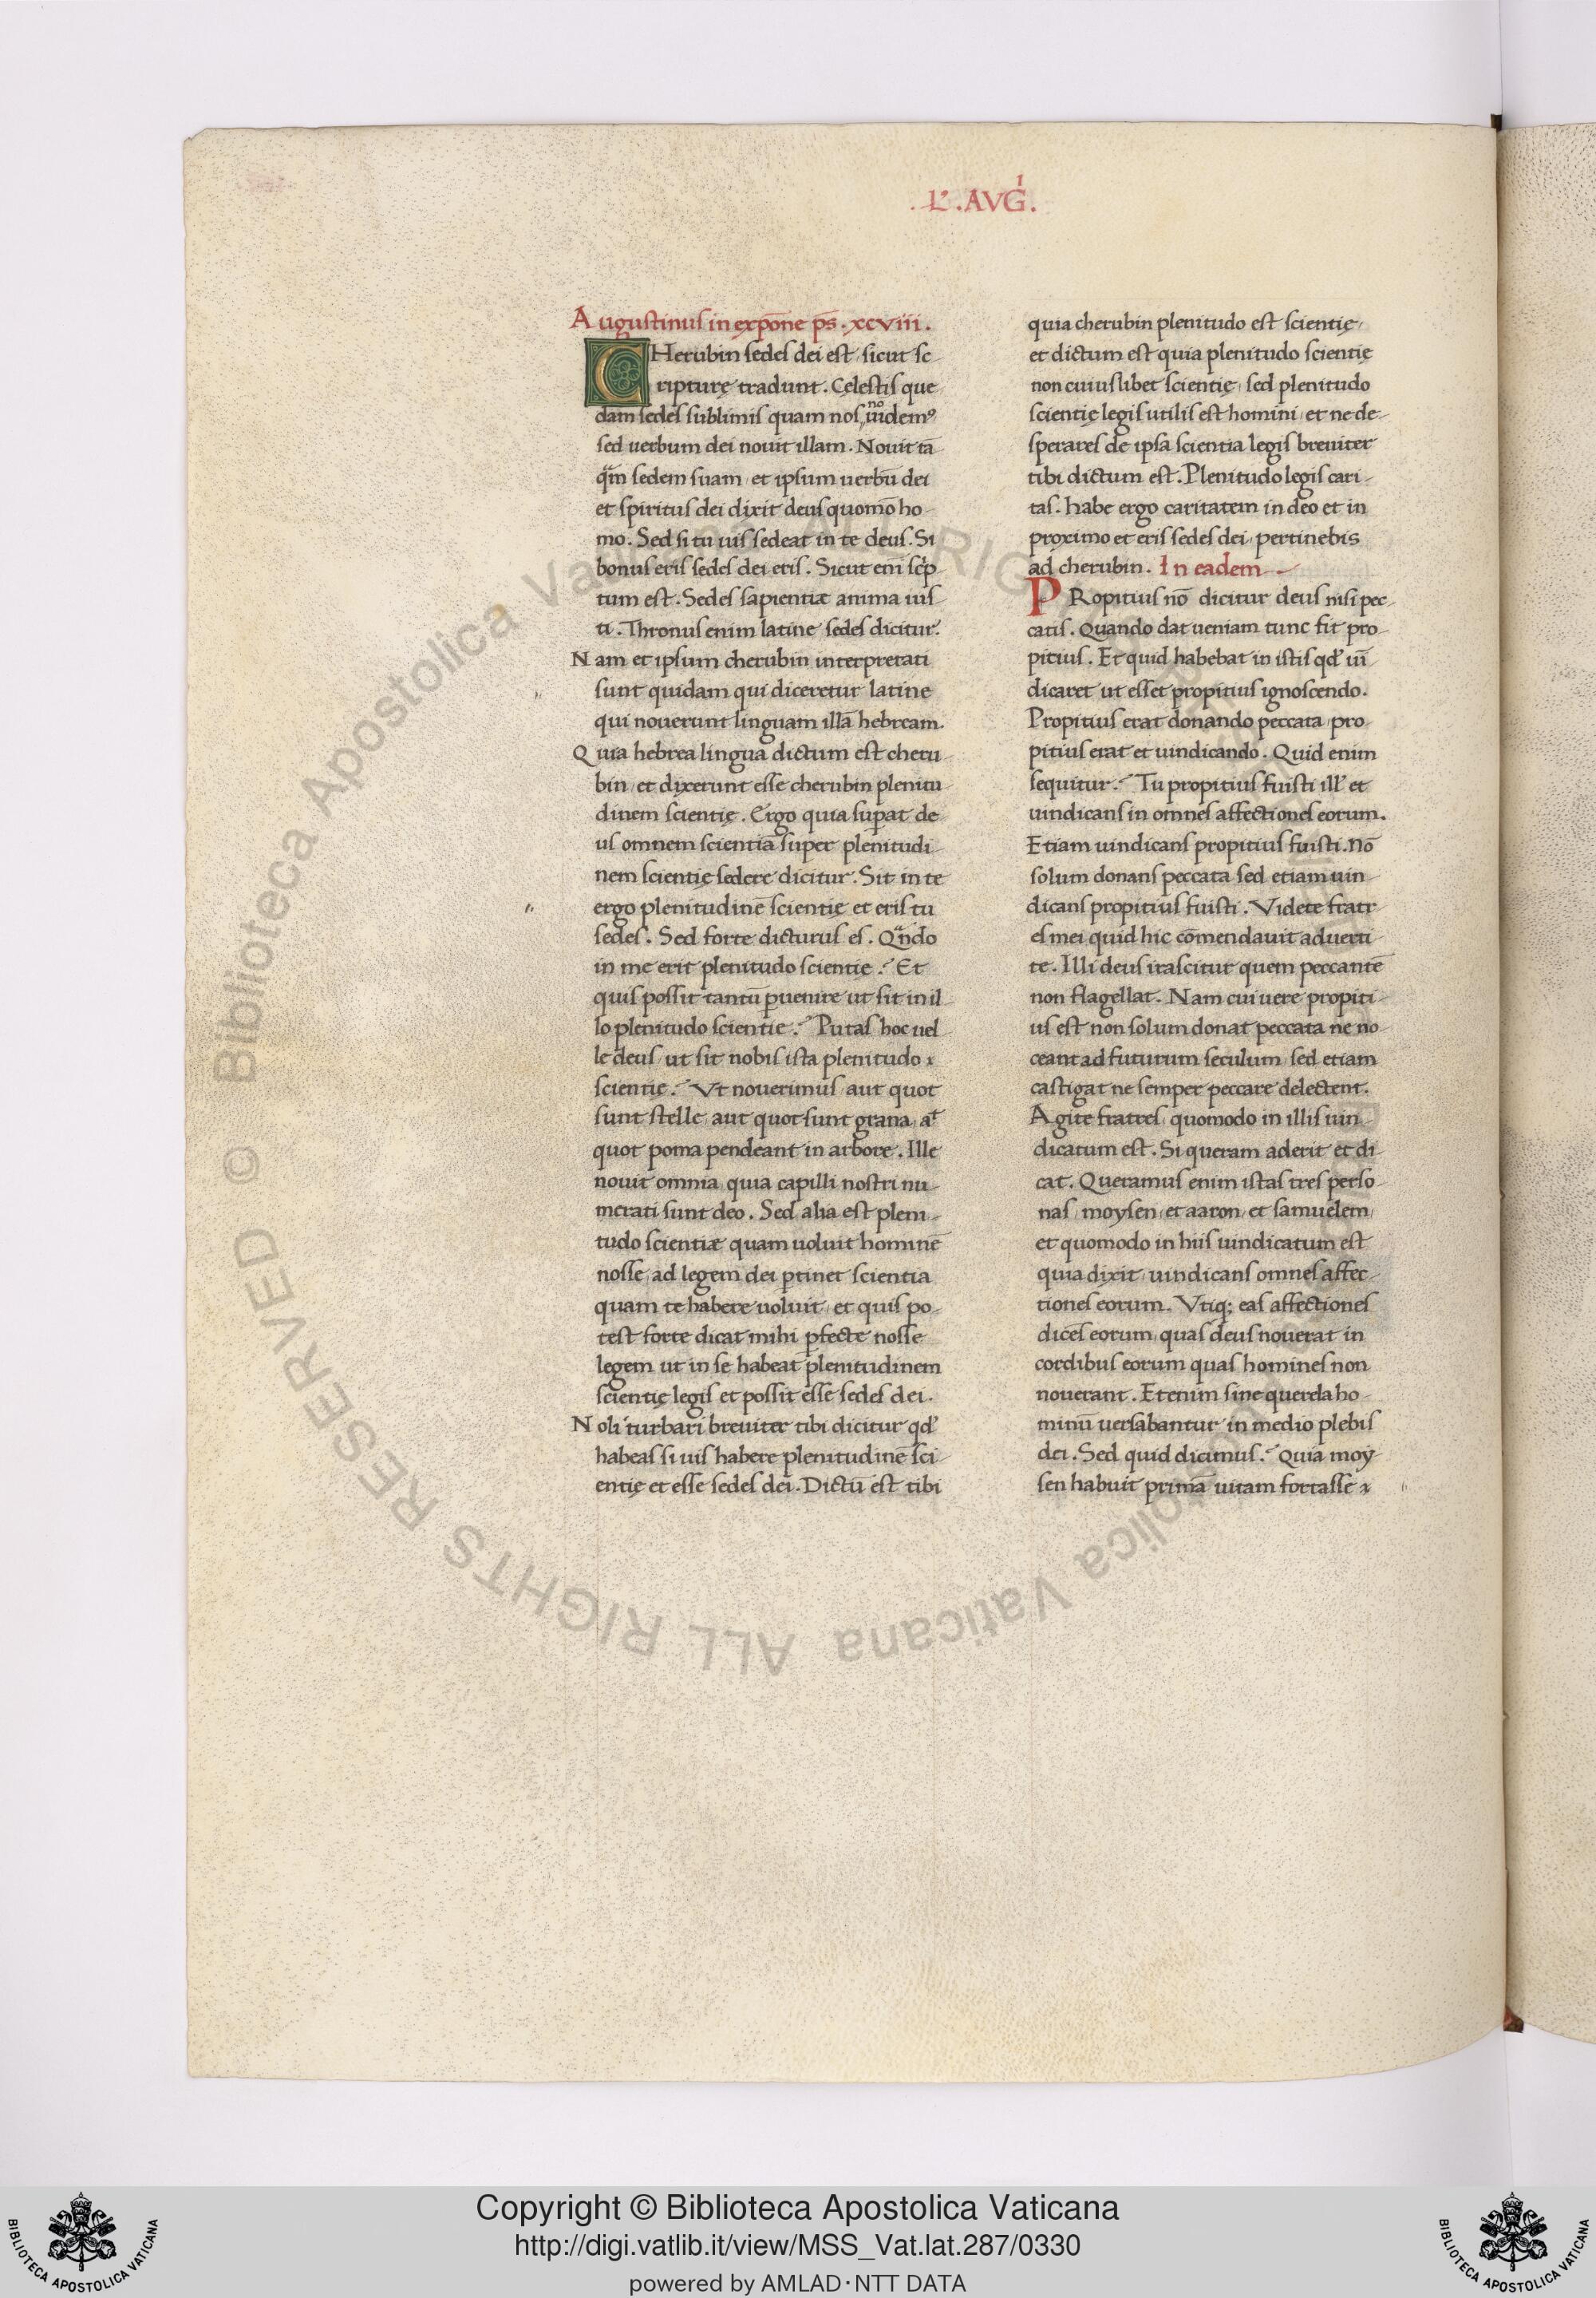 .L'.AVGⁱ.
Augustinus in expōne ps̄. xcviii.
CHerubin sedes dei est, sicut sc-
ripturę tradunt. Cęlestis que
dam sedes sublimis quam nos nō uidemꝰ
sed uerbum dei nouit illam. Nouit tā
q̄m sedem suam, et ipsum uerbū dei
et spiritus dei dixit deus quomō ho-
mo. Sed si tu uis sedeat in te deus. Si
bonus eris sedes dei eris. Sicut eni scͥp-
tum est. Sedes sapientiæ anima ius-
ti. Thronus enim latine sedes dicitur.
Nam et ipsum cherubin interpretati
sunt quidam qui diceretur latine
qui nouerunt linguam illā hebream.
Quia hebrea lingua dictum est cheru-
bin, et dixerunt esse cherubin plenitu-
dinem scientię. Ergo quia suꝑat de-
us omnem scientiā super plenitudi-
nem scientię sedere dicitur. Sit in te
ergo plenitudinē scientię et eris tu
sedes. Sed forte dicturus es. Qn̄do
in me erit plenitudo scientię? Et
quis possit tantū ꝑuenire ut sit in il-
lo plenitudo scientię? Putas hoc uel-
le deus, ut sit nobis ista plenitudo
scientię? Vt nouerimus, aut quot
sunt stelle, aut quot sunt grana, aͭ
quot poma pendeant in arbore. Ille
nouit omnia, quia capilli nostri nu-
merati sunt deo. Sed alia est pleni-
tudo scientiæ quam uoluit hominē
nosse, ad legem dei ꝑtinet scientia
quam te habere uoluit, et quis po-
test forte dicat mihi ꝑfecte nosse
legem ut in se habeat plenitudinem
scientię legis et possit esse sedes dei.
Noli turbari breuiter tibi dicitur qď
habeas si uis habere plenitudinē sci-
entię et esse sedes dei. Dictū est tibi
quia cherubin plenitudo est scientię,
et dictum est quia plenitudo scientię
non cuiuslibet scientię, sed plenitudo
scientię legis utilis est homini, et ne de-
sperares de ipsa scientia legis breuiter
tibi dictum est. Plenitudo legis cari-
tas. habe ergo caritatem in deo et in
proximo et eris sedes dei, pertinebis
ad cherubin. In eadem
PRopitius nō dicitur deus nisi pec-
catis. Quando dat ueniam tunc fit pro-
pitius. Et quid habebat in istis qď uī-
dicaret ut esset propitius ignoscendo.
Propitius erat donando peccata, pro-
pitius erat et uindicando. Quid enim
sequitur? Tu propitius fuisti ill' et
uindicans in omnes affectiones eorum.
Etiam uindicans propitius fuisti. Nō
solum donans peccata sed etiam uin-
dicans propitius fuisti. Videte fratr-
es mei quid hic cōmendauit aduerti-
te. Illi deus irascitur quem peccantē
non flagellat. Nam cui uere propiti-
us est non solum donat peccata ne no-
ceant ad futurum seculum, sed etiam
castigat ne semper peccare delectent.
Agite fratres, quomodo in illis uin-
dicatum est. Si queram aderit et di-
cat. Queramus enim istas tres perso-
nas, moysen, et aaron, et samuelem,
et quomodo in hiis uindicatum est
quia dixit, uindicans omnes affec-
tiones eorum. Vtiq; eas affectiones
dices eorum, quas deus nouerat in
cordibus eorum quas homines non
nouerant. Etenim sine querela ho-
minū uersabantur in medio plebis
dei. Sed quid dicimus? Quia moy-
sen habuit primā uitam fortasse
Biblioteca Apostolica Vaticana ALL RIGHTS RESERVED ©
Copyright © Biblioteca Apostolica Vaticana
http://digi.vatlib.it/view/MSS_Vat.lat.287/0330
powered by AMLAD·NTT DATA
BIBLIOTECA APOSTOLICA VATICANA
BIBLIOTECA APOSTOLICA VATICANA